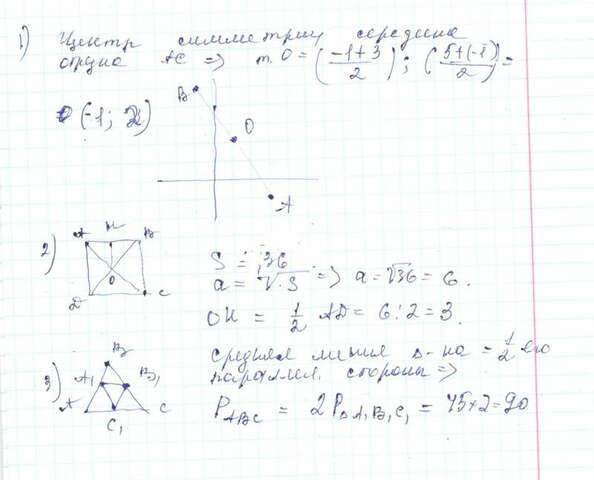 1) Центр симметрии середина
отрезка АС => т. О = (-1+3/2); (5+(-1)/2) =
(-1; 2)
B
O
A
2)
А Н В
О
D С
S = 36
a = √S => a = √36 = 6.
OH = 1/2 AD = 6:2 = 3.
3)
B
A1 B1
A C
C1
средняя линия Δ-ка = 1/2 его
параллел. стороны =>
P ABC = 2P Δ A1B1C1 = 45×2=90